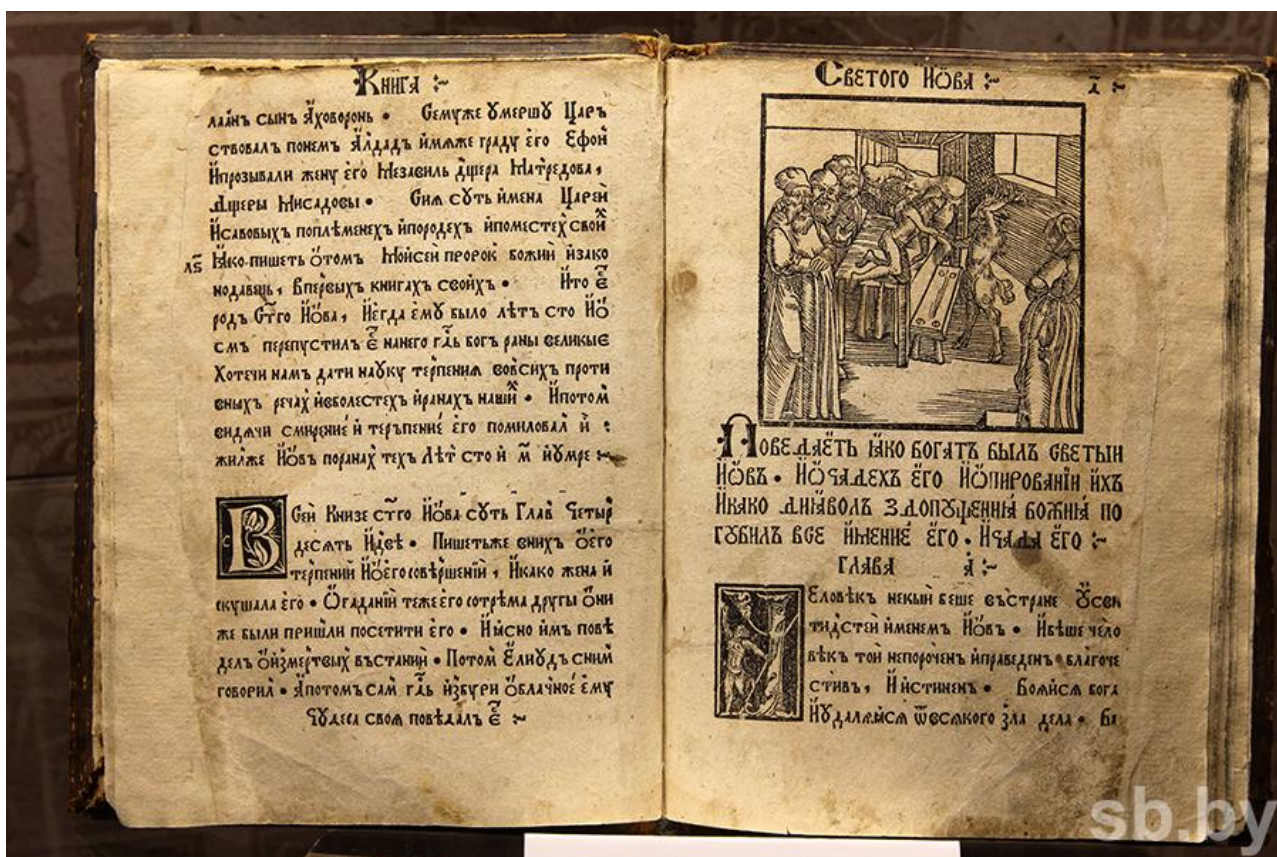 Книга :~
лаанъ сынъ Аховоронь • Семуже умершу Царъ
ствовалъ понем Алдадъ имяже граду его Ефои
Ипрозывали жену его Мезавиль дщера Матредова,
Дщеры Мисадовы • Сия суть имена Царей
Исавовыхъ поплеменехъ ипородехъ ипоместех своиͯ
лѕ
Iако пишеть отом Моисеи пророк божии изако
нодавець, Впервыхъ книгахъ своихъ • Ито е҃
род Ст҃го Иова, Иегда ему было лѣтъ сто Ио
смъ перепустил е҃ нанего г҃дь богъ раны великые
Хотечи намъ дати науку терпения вовсихъ проти
вныхъ речах ивболестехъ иранахъ нашиͯ • Ипотом
видячи смирение и теръпение его помиловал и :
жилже Иовъ поранах тех Лѣт сто и м҃ иумре :~
Всеи Книзе ст҃го Иова суть Глав Четыр
десять Идве • Пишетьже вних оего
терпении Иоего совѣршении, Икако жена и
скушала его • Огадании теже его сотрема другы Они
же были пришли посетити его • Иясно имъ повѣ
делъ оизмертвых въстании • Потом Елиудъ сним
говорил • Апотомъ сам г҃дь избури облачное ему
Чудеса своя поведалъ е҃ :~
Светого Иова :~ а҃ :~
Поведаеть iако богатъ былъ светыи
Иовъ • Иочадехъ его Иопировании ихъ
Икако диявол здопущения божия по
губилъ все имение его • Ичада его :~
ГЛАВА а҃ :~
Человѣкъ некыи беше въстране Усви
тидстеи именемъ Иовъ • Ибѣше чело
вѣкъ тои непорочен иправеденъ благоче
стивъ, Иистинен • Бояися бога
Иудаляяися ѿвсякого зла дела • Бе
sb.by